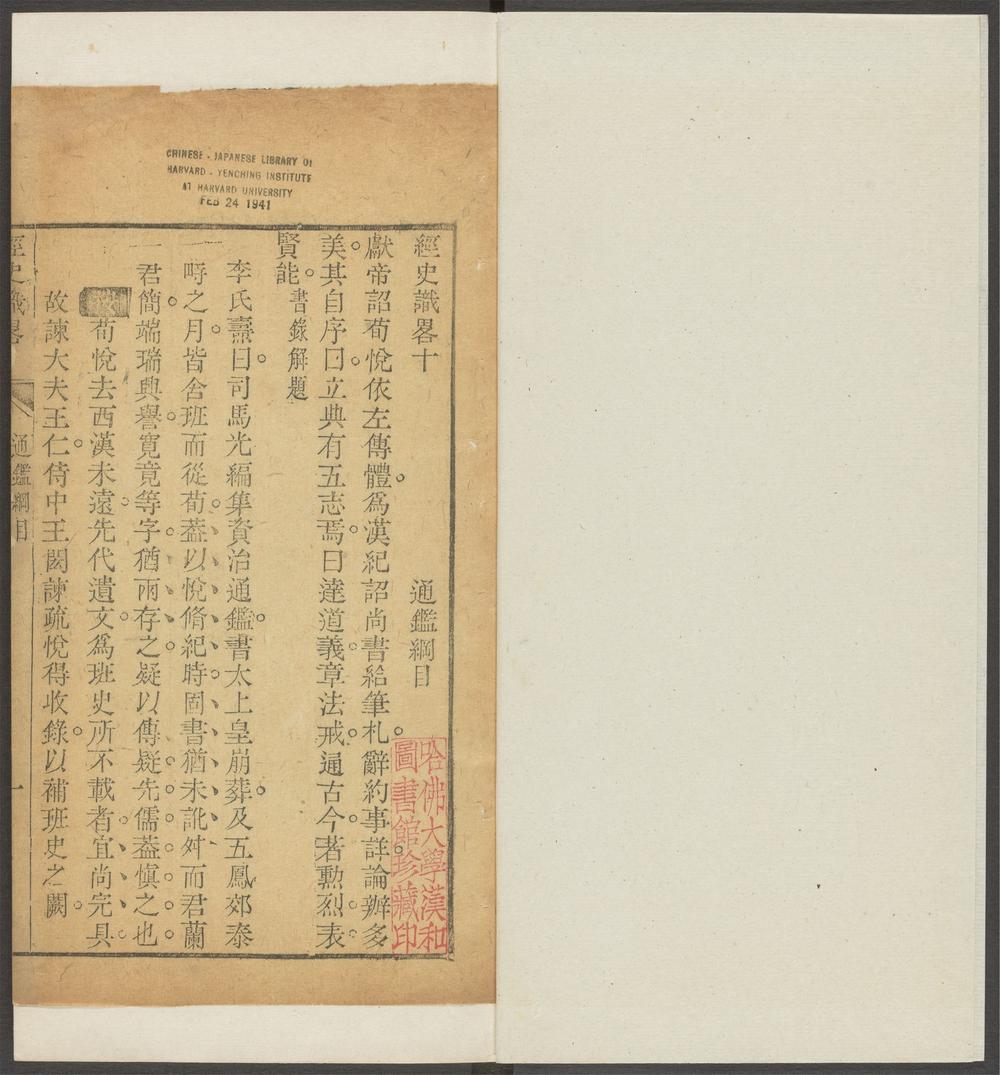 CHINESE - JAPANESE LIBRARY OF
HARVARD - YENCHING INSTITUTE
AT HARVARD UNIVERSITY
FEB 24 1941
經史識畧十
通鑑綱目
獻帝詔荀悅依左傳體爲漢紀詔尚書給筆札辭約事詳論辨多
美其自序曰立典有五志焉曰達道義章法戒通古今著勲烈表
賢能書錄解題
李氏燾曰司馬光編集資治通鑑書太上皇崩葬及五鳳郊泰
畤之月皆舍班而從荀葢以悅脩紀時固書猶未訛舛而君蘭
君簡端瑞興譽寬竟等字猶兩存之疑以傳疑先儒葢愼之也
荀悅去西漢未遠先代遺文爲班史所不載者宜尚完具
故諫大夫王仁侍中王閎諫疏悅得收錄以補班史之闕
經史識畧
通鑑綱目
一
哈佛大學漢和
圖書館珍藏印